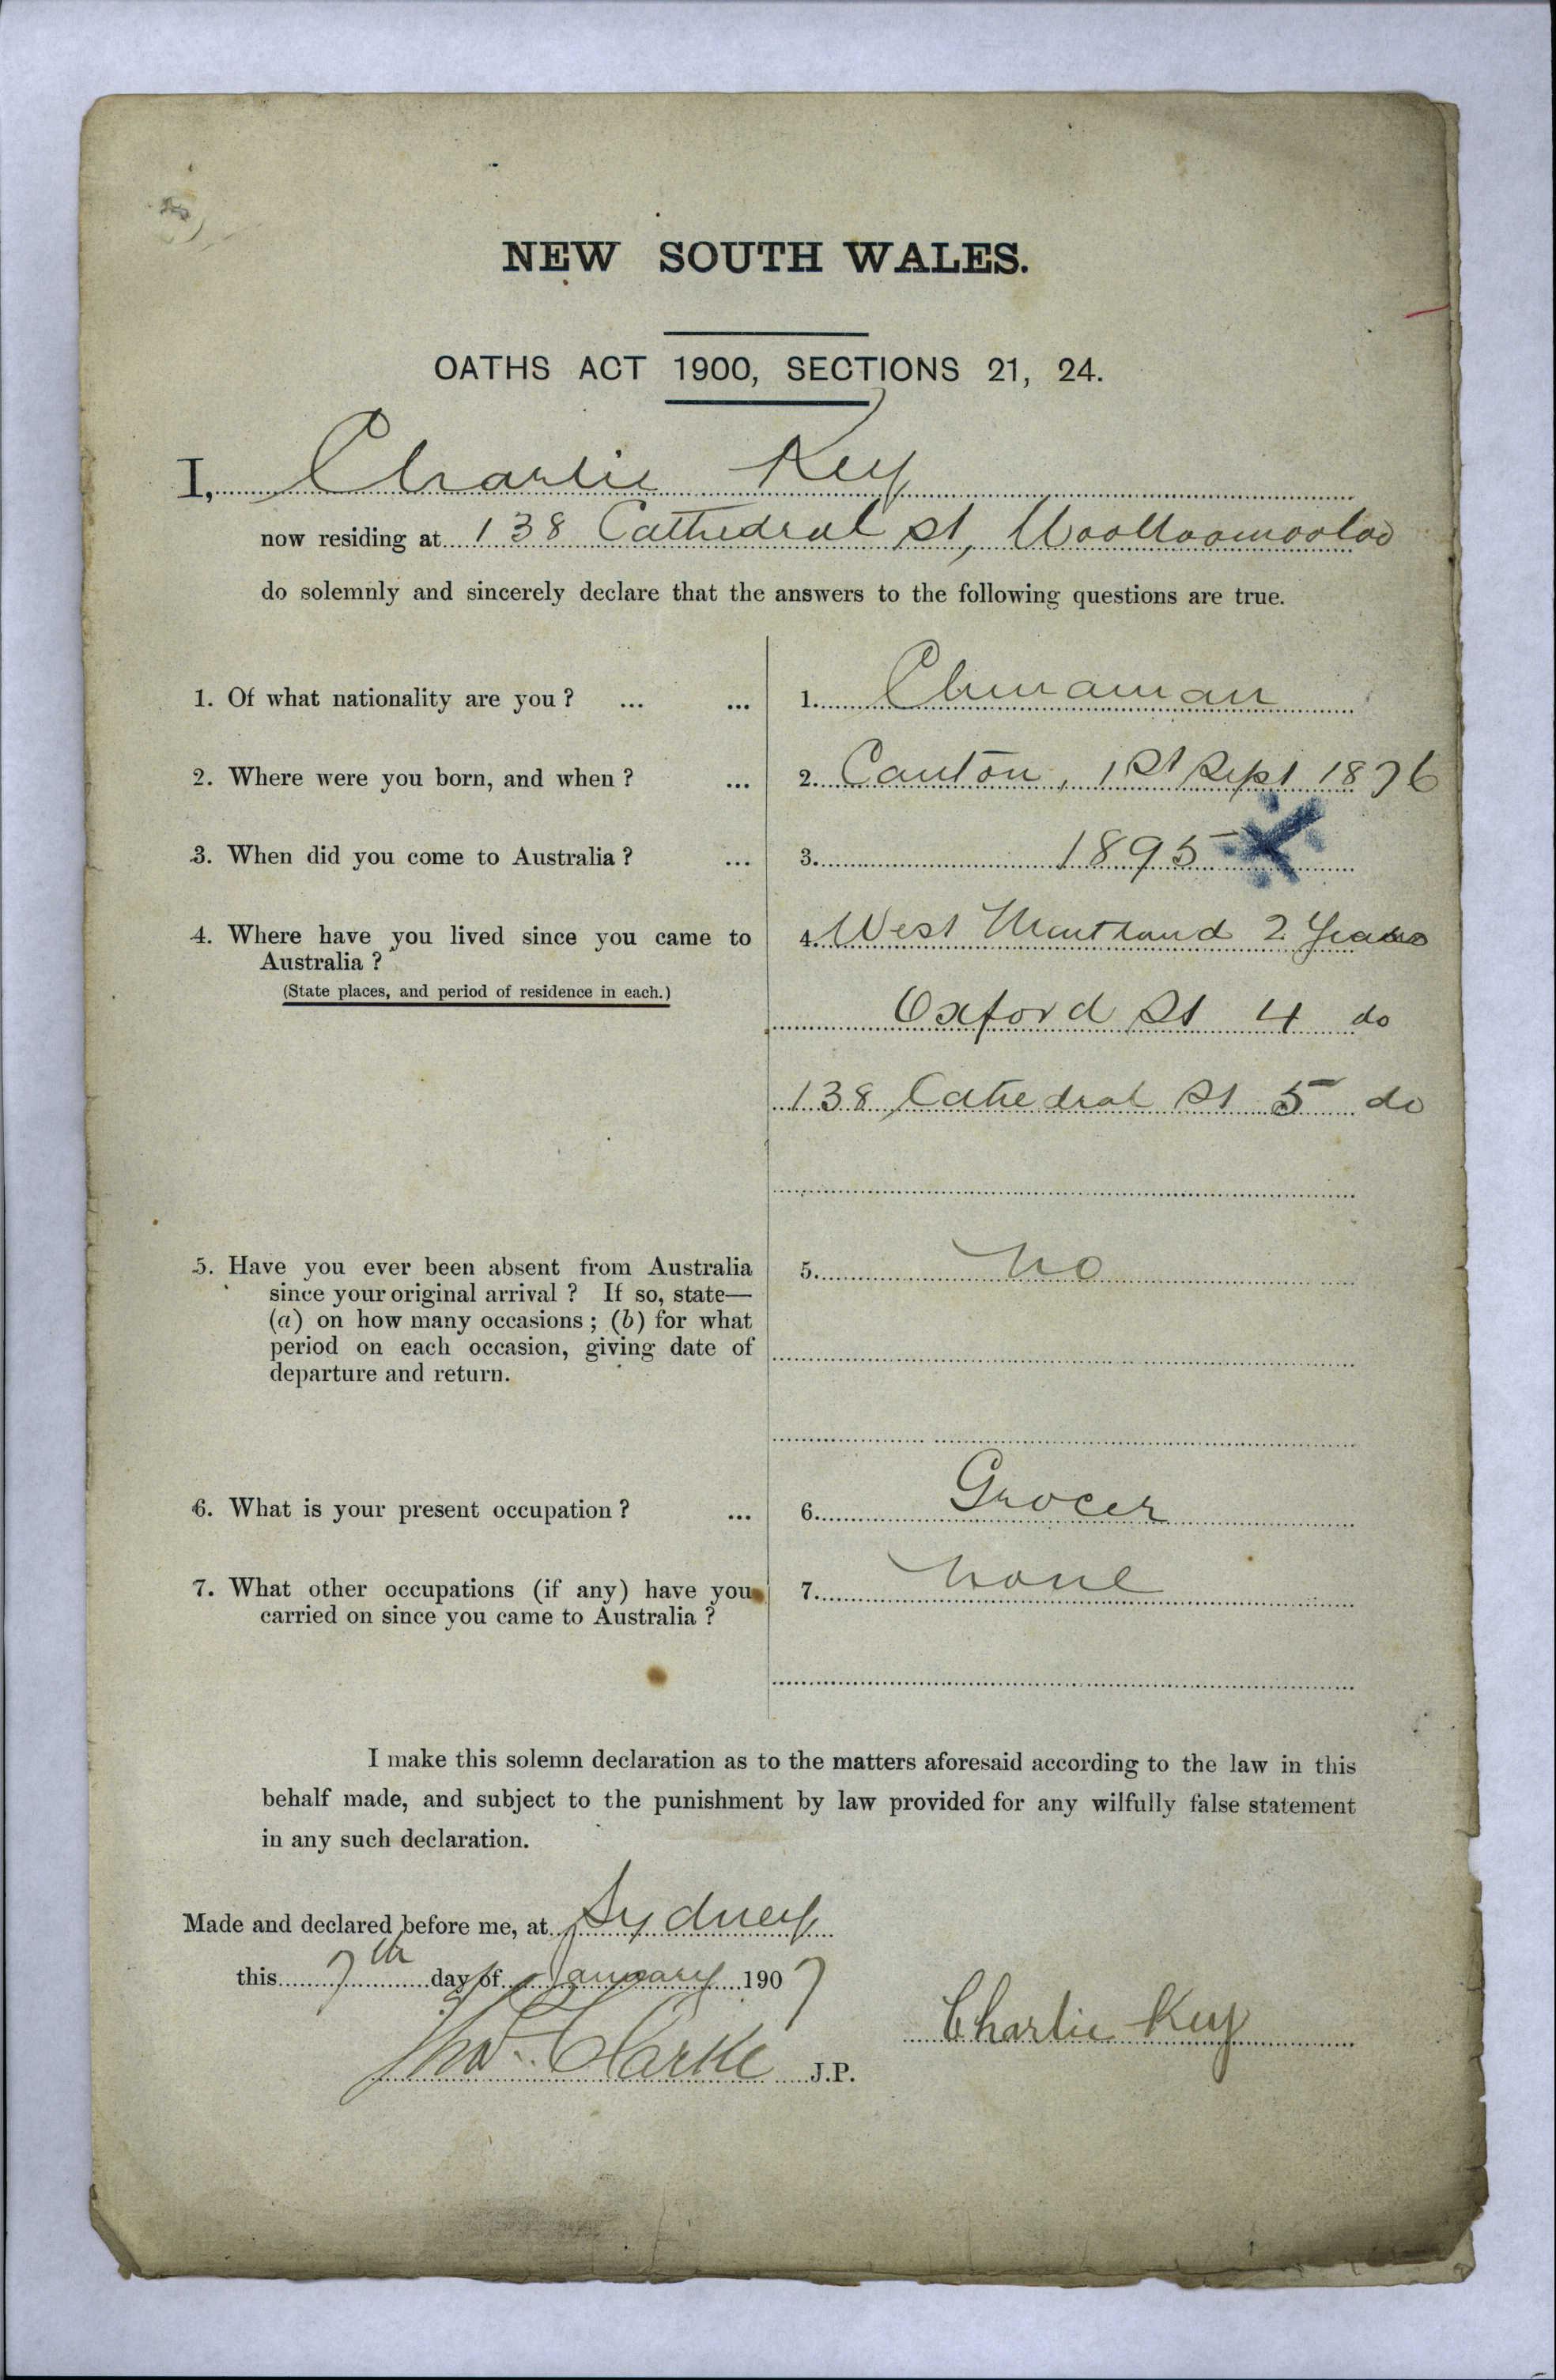 NEW SOUTH WALES.
OATHS ACT 1900, SECTIONS 21, 24.
I, Charlie Key
now residing at 138 Cathedral St, Woolloomooloo
do solemnly and sincerely declare that the answers to the following questions are true.
1. Of what nationality are you ? ... ... 1. Chinaman
2. Where were you born, and when ? ... 2. Canton, 1st Sept 1876
3. When did you come to Australia ? ... 3. 1895
4. Where have you lived since you came to 4. West Maitland 2 Years
Australia ?
(State places, and period of residence in each.)
Oxford St 4 do
138 Cathedral St 5 do
5. Have you ever been absent from Australia 5. No
since your original arrival ? If so, state—
(a) on how many occasions ; (b) for what
period on each occasion, giving date of
departure and return.
6. What is your present occupation ? ... 6. Grocer
7. What other occupations (if any) have you 7. None
carried on since you came to Australia ?
I make this solemn declaration as to the matters aforesaid according to the law in this
behalf made, and subject to the punishment by law provided for any wilfully false statement
in any such declaration.
Made and declared before me, at Sydney
this 7th day of January 1907
Thos Clarke J.P.
Charlie Key